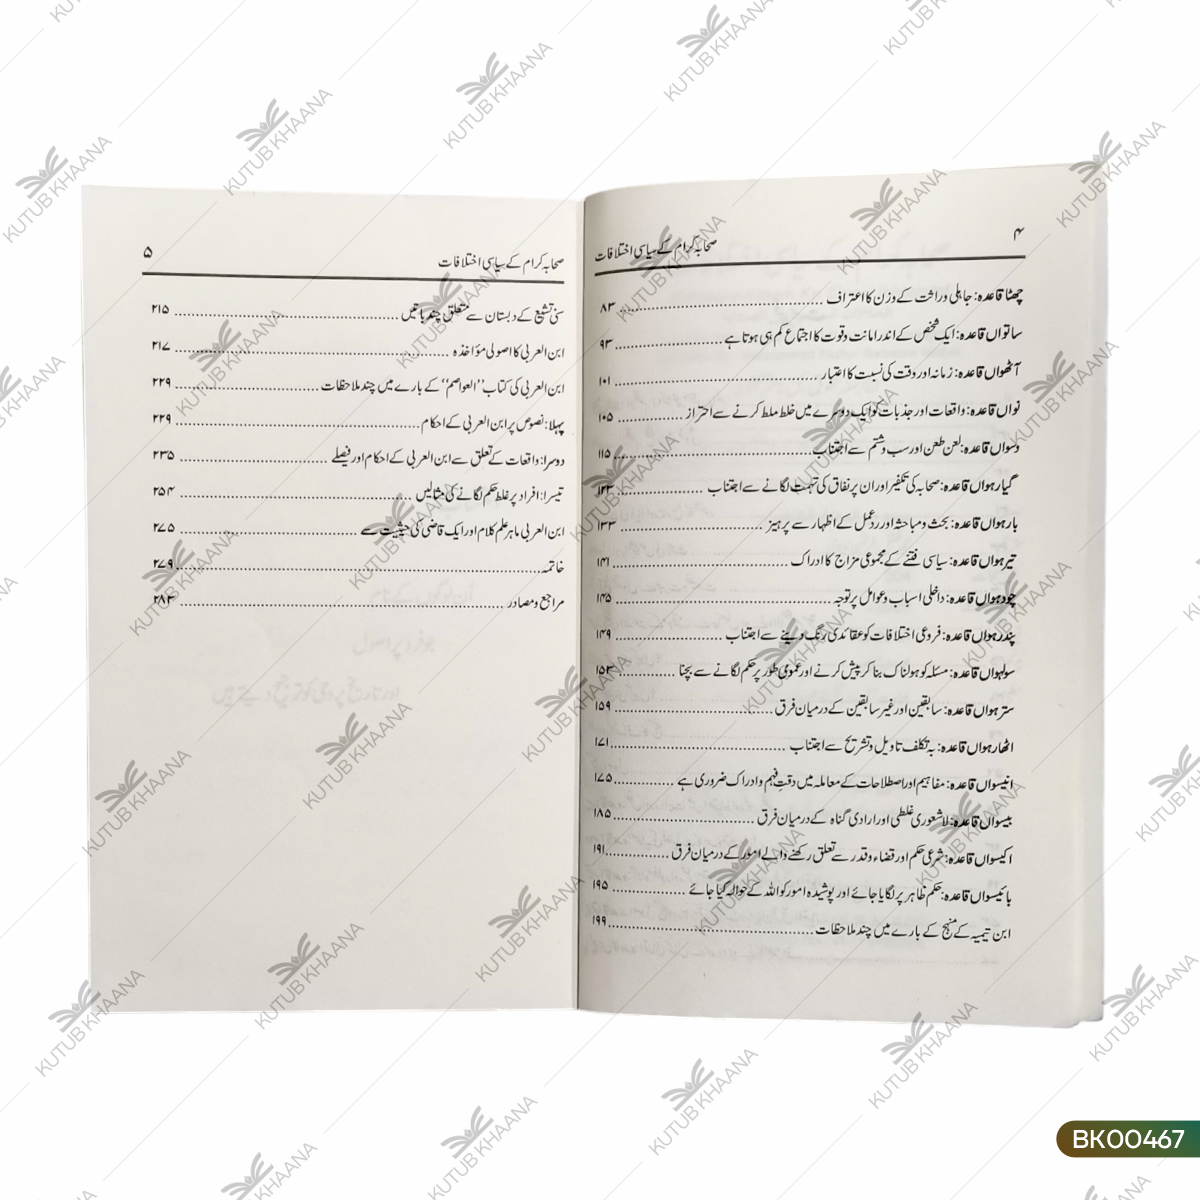 ۴
صحابہ کرام کے سیاسی اختلافات
چھٹا قاعدہ: جاہلی وراثت کے وزن کا اعتراف ........ ۸۳
ساتواں قاعدہ: ایک شخص کے اندر امانت وقوت کا اجتماع کم ہی ہوتا ہے ........ ۹۳
آٹھواں قاعدہ: زمانہ اور وقت کی نسبت کا اعتبار ........ ۱۰۱
نواں قاعدہ: واقعات اور جذبات کو ایک دوسرے میں خلط ملط کرنے سے احتراز ........ ۱۰۵
دسواں قاعدہ: لعن طعن اور سب وشتم سے اجتناب ........ ۱۱۵
گیارہواں قاعدہ: صحابہ کی تکفیر اور ان پر نفاق کی تہمت لگانے سے اجتناب ........ ۱۲۳
بارہواں قاعدہ: بحث ومباحثہ اور ردعمل کے اظہار سے پرہیز ........ ۱۳۳
تیرہواں قاعدہ: سیاسی فتنے کے مجموعی مزاج کا ادراک ........ ۱۴۱
چودہواں قاعدہ: داخلی اسباب وعوامل پر توجہ ........ ۱۴۵
پندرہواں قاعدہ: فروعی اختلافات کو عقائدی رنگ دینے سے اجتناب ........ ۱۴۹
سولہواں قاعدہ: مسئلہ کو ہولناک بنا کر پیش کرنے اور عمومی طور پر حکم لگانے سے بچنا ........ ۱۵۳
سترہواں قاعدہ: سابقین اور غیر سابقین کے درمیان فرق ........ ۱۵۹
اٹھارہواں قاعدہ: بہ تکلف تاویل وتشریح سے اجتناب ........ ۱۷۱
انیسواں قاعدہ: مفاہیم اور اصطلاحات کے معاملہ میں دقتِ فہم وادراک ضروری ہے ........ ۱۷۵
بیسواں قاعدہ: لاشعوری غلطی اور ارادی گناہ کے درمیان فرق ........ ۱۸۵
اکیسواں قاعدہ: شرعی حکم اور قضاء وقدر سے تعلق رکھنے والے امور کے درمیان فرق ........ ۱۹۱
بائیسواں قاعدہ: حکم ظاہر پر لگایا جائے اور پوشیدہ امور کو اللہ کے حوالہ کیا جائے ........ ۱۹۵
ابن تیمیہ کے منہج کے بارے میں چند ملاحظات ........ ۱۹۹
صحابہ کرام کے سیاسی اختلافات
۵
سنی تشیع کے دبستان سے متعلق چند باتیں ........ ۲۱۵
ابن العربی کا اصولی مؤاخذہ ........ ۲۱۷
ابن العربی کی کتاب "العواصم" کے بارے میں چند ملاحظات ........ ۲۲۹
پہلا: نصوص پر ابن العربی کے احکام ........ ۲۲۹
دوسرا: واقعات کے تعلق سے ابن العربی کے احکام اور فیصلے ........ ۲۳۵
تیسرا: افراد پر غلط حکم لگانے کی مثالیں ........ ۲۵۴
ابن العربی ماہر علم کلام اور ایک قاضی کی حیثیت سے ........ ۲۷۵
خاتمہ ........ ۲۷۹
مراجع ومصادر ........ ۲۸۳
KUTUB KHAANA
BK00467